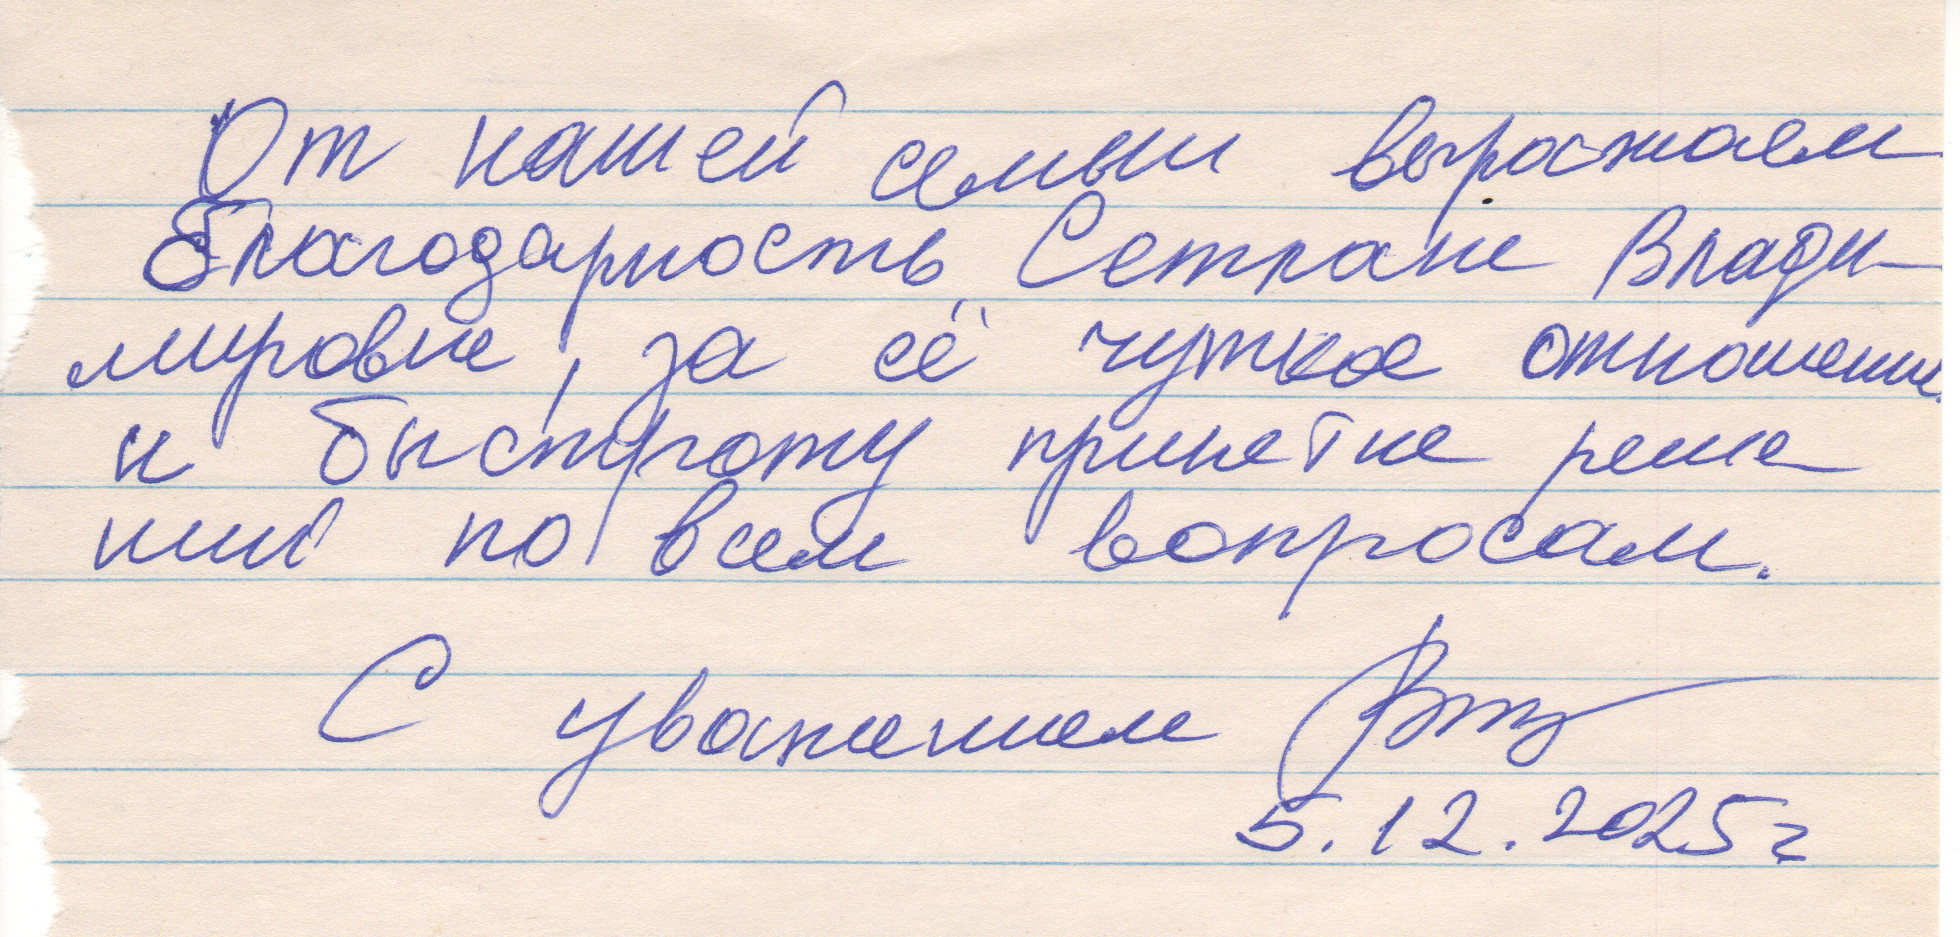 От нашей семьи выражаем
благодарность Сетлане Влади-
мировне, за её чуткое отношение
и быстроту принетие реше
ний по всем вопросам.
С уважением
5.12.2025г